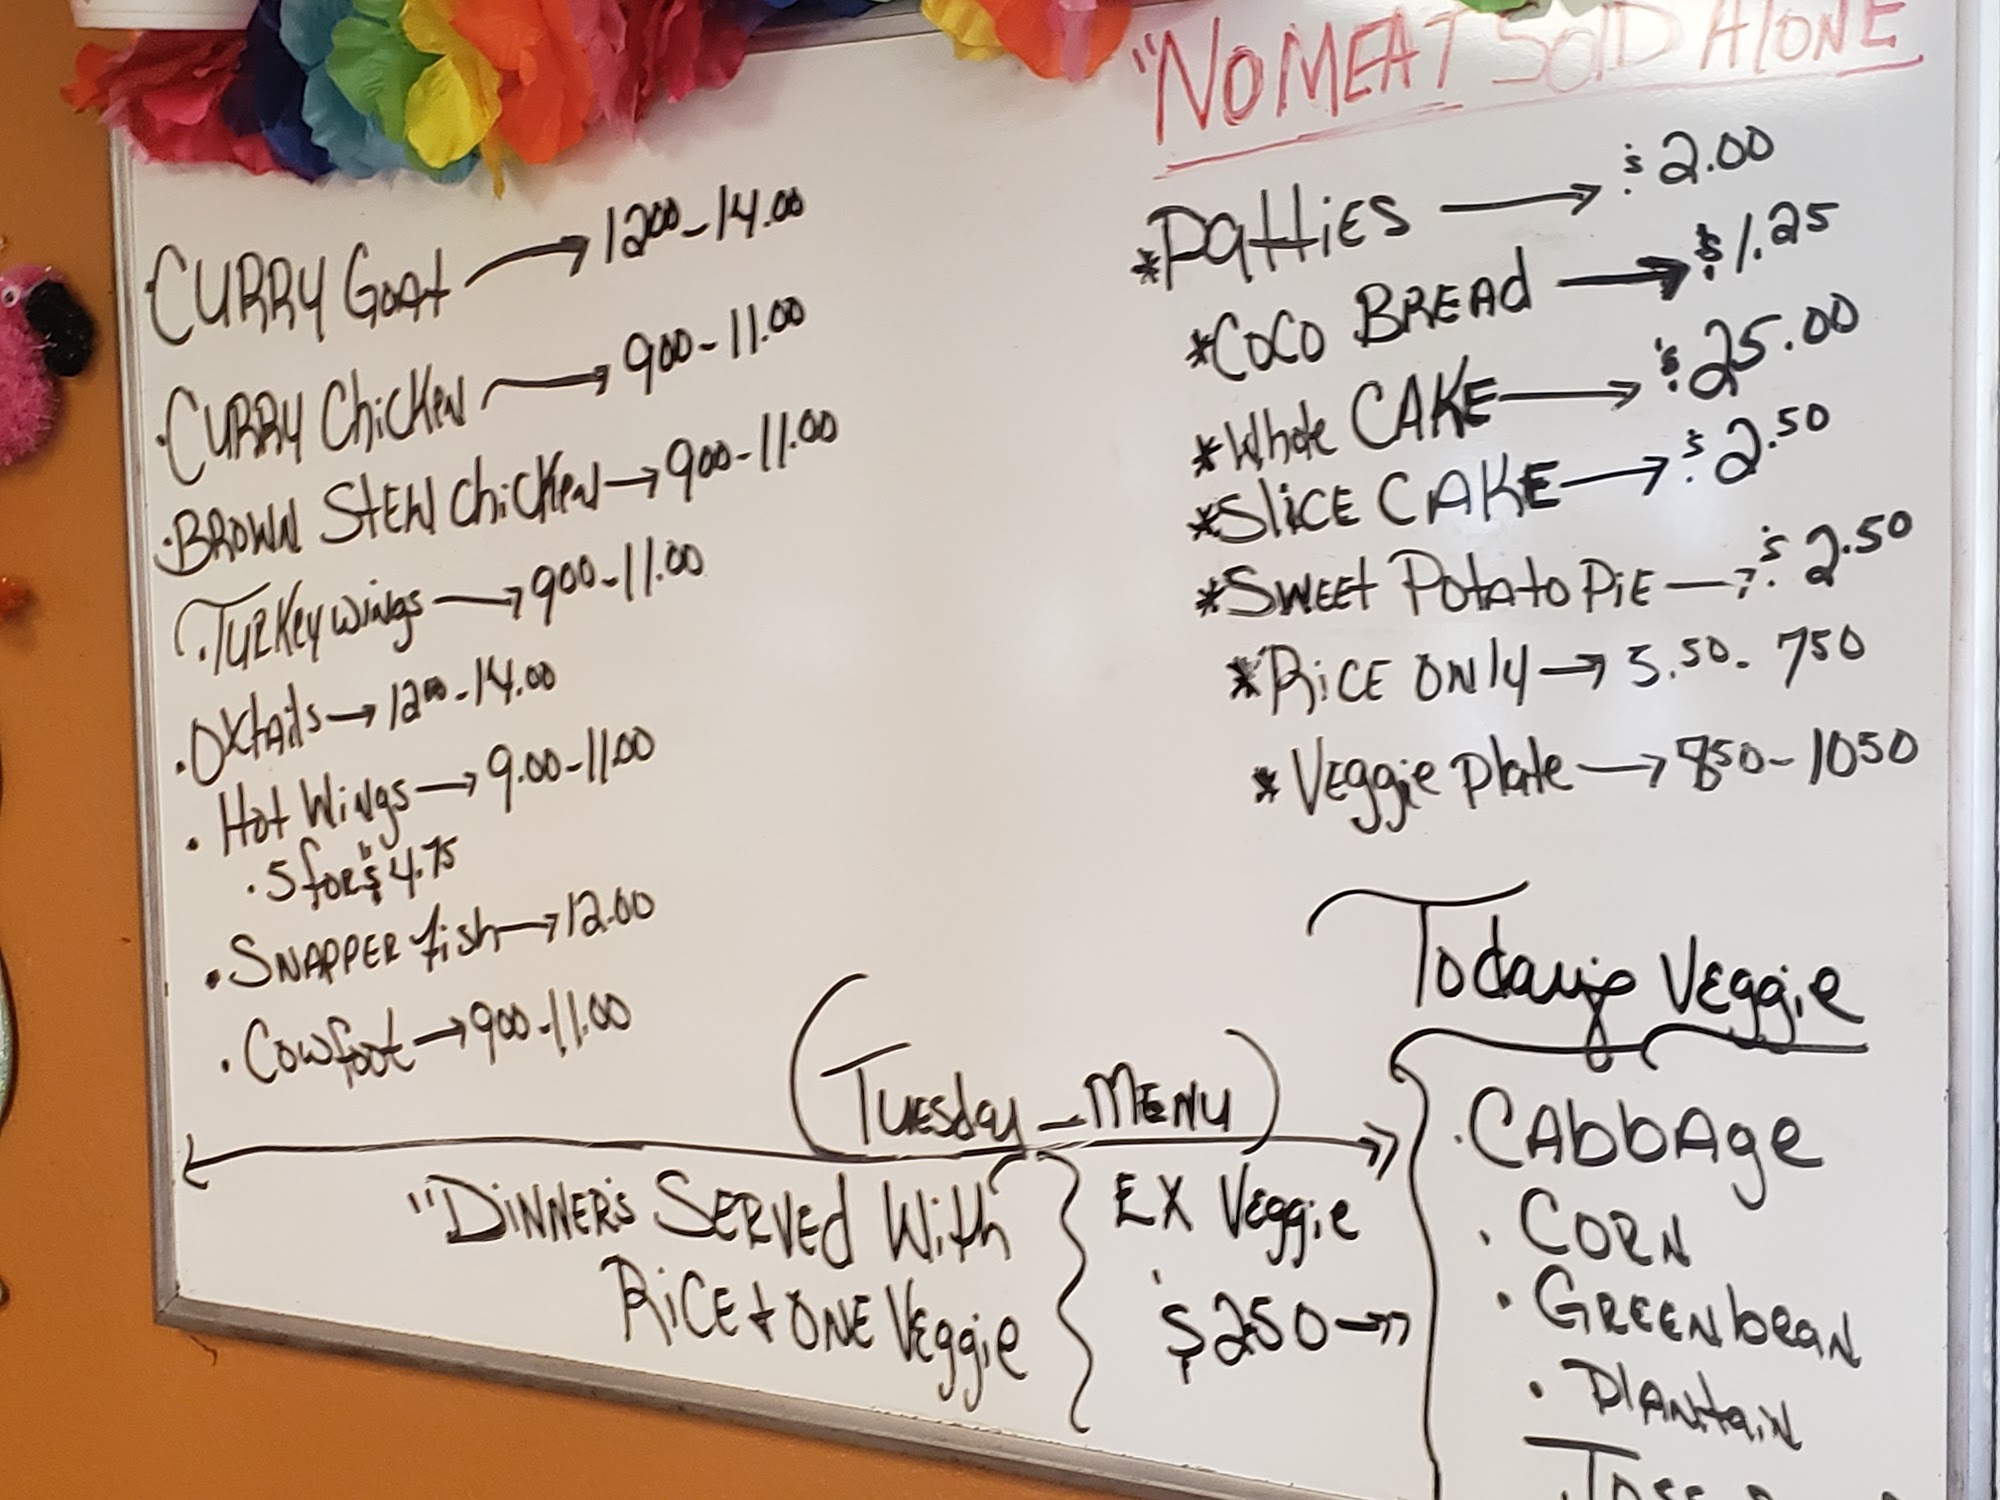 "NO MEAT SOLD ALONE
·CURRY Goat → 1200-14.00
·CURRY Chicken → 900-11.00
·BROWN STEW Chicken → 900-11.00
·Turkey wings → 900-11.00
·Oxtails → 1200-14.00
·Hot Wings → 9.00-11.00
·5 for $4.75
·SNAPPER fish → 12.00
·Cowfoot → 900-11.00
*Patties → $2.00
*COCO BREAD → $1.25
*Whole CAKE → $25.00
*Slice CAKE → $2.50
*SWEET Potato PiE → $2.50
*RiCE ONLY → 5.50-750
*Veggie Plate → 850-1050
(Tuesday-MENU)
"DiNNER's SERVED With
RiCE + ONE Veggie
EX Veggie
$250 →
Today's Veggie
·CAbbAge
·CORN
·GREENbean
·Plantain